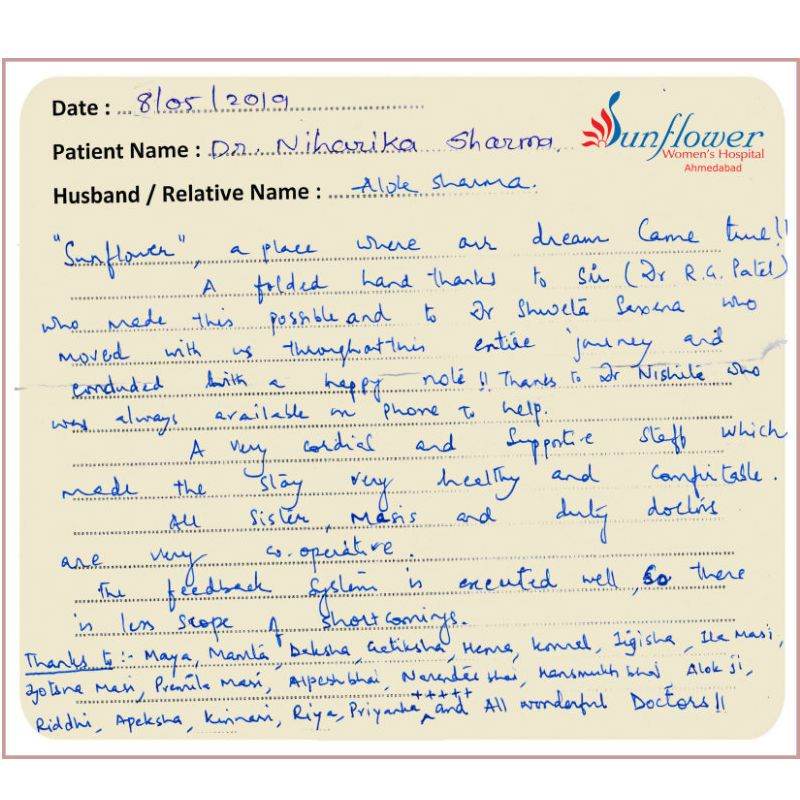 Date : 8/05/2019
Sunflower
Women's Hospital
Ahmedabad
Patient Name : Dr. Niharika Sharma.
Husband / Relative Name : Alok Sharma.
"Sunflower", a place where our dream came true!!
A folded hand thanks to Sir (Dr R.G. Patel)
who made this possible and to Dr Shweta Saxena who
moved with us throughout this entire journey and
concluded with a happy note!! Thanks to Dr Nishita who
was always available on phone to help.
A very cordial and supportive staff which
made the stay very healthy and comfortable.
All Sister, Masis and duty doctors
are very co-operative.
The feedback system is executed well, so there
is less scope of shortcomings.
Thanks to :- Maya, Mamta, Daksha, Geetiksha, Hema, Komal, Jigisha, Ila Masi,
Jyotsna Masi, Premila Masi, Alpeshbhai, Narendra bhai, Hansmukh bhai, Alok ji,
Riddhi, Apeksha, Kinnari, Riya, Priyanka +++++ and All wonderful Doctors!!